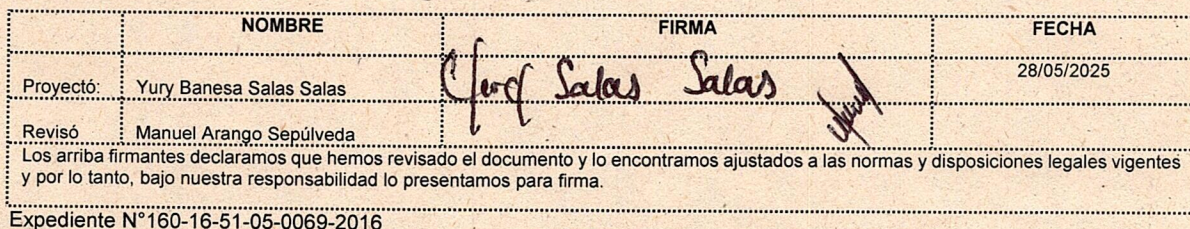 NOMBRE FIRMA FECHA
Proyectó: Yury Banesa Salas Salas Yury Salas Salas 28/05/2025
Revisó Manuel Arango Sepúlveda
Los arriba firmantes declaramos que hemos revisado el documento y lo encontramos ajustados a las normas y disposiciones legales vigentes
y por lo tanto, bajo nuestra responsabilidad lo presentamos para firma.
Expediente N°160-16-51-05-0069-2016